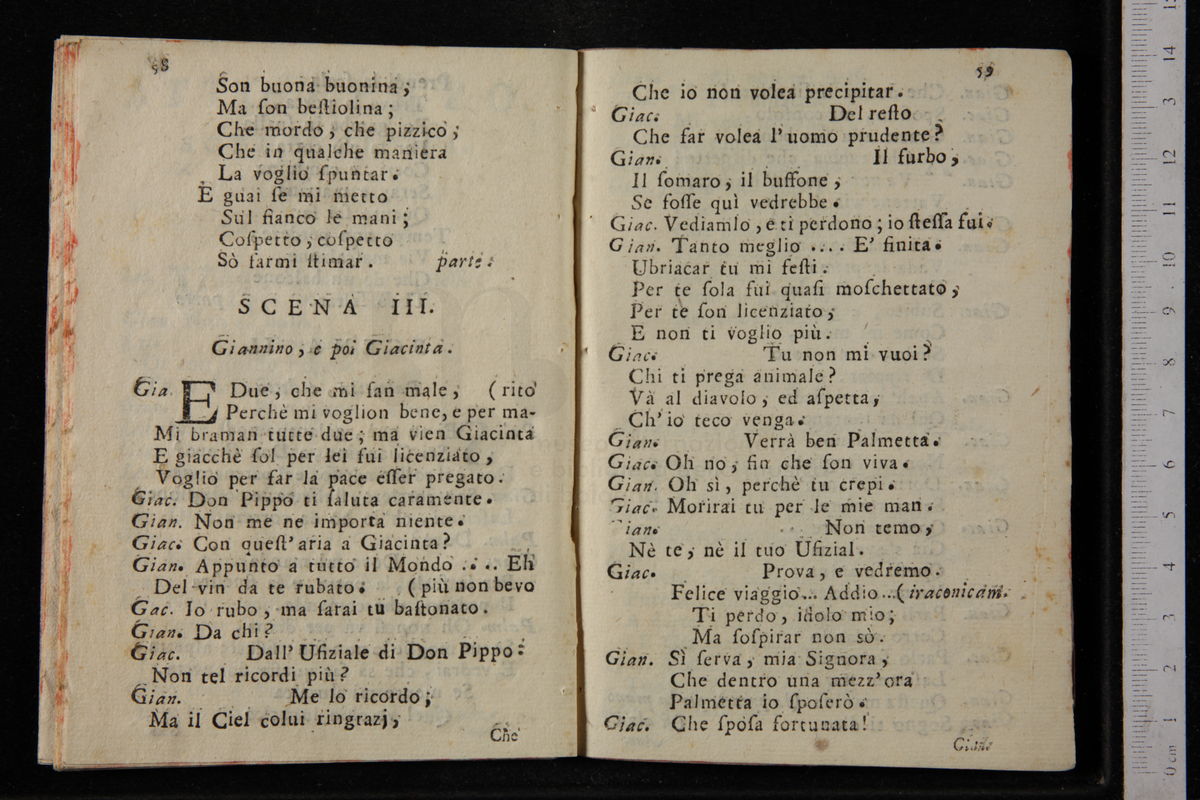 58
Son buona buonina;
Ma ſon beſtiolina;
Che mordo, che pizzico;
Che in qualche maniera
La voglio ſpuntar.
E guai ſe mi metto
Sul fianco le mani;
Coſpetto, coſpetto
Sò farmi ſtimar. parte.
SCENA III.
Giannino, e poi Giacinta.
Gia. E Due, che mi fan male, (rito
Perchè mi voglion bene, e per ma-
Mi braman tutte due; ma vien Giacinta
E giacchè ſol per lei fui licenziato,
Voglio per far la pace eſſer pregato.
Giac. Don Pippo ti ſaluta caramente.
Gian. Non me ne importa niente.
Giac. Con queſt'aria a Giacinta?
Gian. Appunto a tutto il Mondo .... Eh
Del vin da te rubato. (più non bevo
Gac. Io rubo, ma ſarai tu baſtonato.
Gian. Da chi?
Giac. Dall' Ufiziale di Don Pippo:
Non tel ricordi più?
Gian. Me lo ricordo;
Ma il Ciel colui ringrazj,
Chè
59
Che io non volea precipitar.
Giac. Del reſto
Che far volea l'uomo prudente?
Gian. Il furbo,
Il ſomaro, il buffone,
Se foſſe quì vedrebbe.
Giac. Vediamlo, e ti perdono; io ſteſſa fui.
Gian. Tanto meglio .... E' finita.
Ubriacar tu mi feſti.
Per te ſola fui quaſi moſchettato,
Per te ſon licenziato,
E non ti voglio più.
Giac. Tu non mi vuoi?
Chi ti prega animale?
Và al diavolo, ed aſpetta,
Ch' io teco venga.
Gian. Verrà ben Palmetta.
Giac. Oh no, fin che ſon viva.
Gian. Oh sì, perchè tu crepi.
Giac. Morirai tu per le mie man.
Gian. Non temo,
Nè te, nè il tuo Ufizial.
Giac. Prova, e vedremo.
Felice viaggio... Addio...(iraconicam.
Ti perdo, idolo mio;
Ma ſoſpirar non sò.
Gian. Sì ſerva, mia Signora,
Che dentro una mezz'ora
Palmetta io ſpoſerò.
Giac. Che ſpoſa fortunata!
Gian.